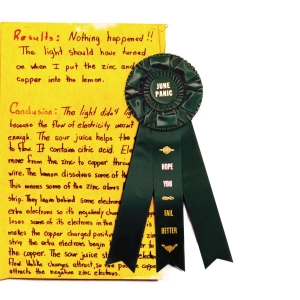 Results: Nothing happened!!
The light should have turned
on when I put the zinc and
copper into the lemon.
Conclusion: The light didn't lig
because the flow of electricity wasn't
enough. The sour juice helps the
to flow. It contains citric acid. El
move from the zinc to copper throu
wire. The lemon dissolves some of the
This means some of the zinc atoms
strip. They leave behind some electrons
extra electrons so its negatively char
loses some of its electrons in the
makes the copper charged positive
strip the extra electrons begin
the copper. The sour juice
flow. Unlike charges attract so the
attracts the negative zinc electrons.
JUNE
PANIC
HOPE
YOU
FAIL
BETTER